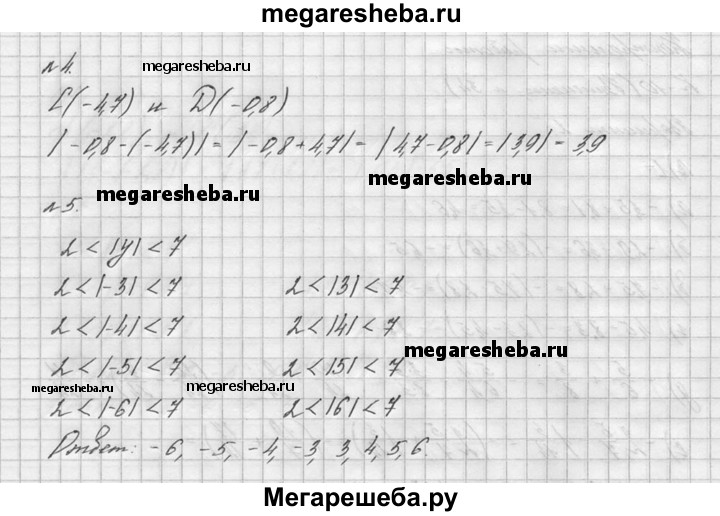 megaresheba.ru
№4. megaresheba.ru
C(-4,7) и D(-0,8)
|-0,8-(-4,7)|=|-0,8+4,7|=|4,7-0,8|=|3,9|=3,9
megaresheba.ru
megaresheba.ru
№5.
2<|y|<7
2<|-3|<7 2<|3|<7
2<|-4|<7 2<|4|<7
megaresheba.ru
2<|-5|<7 2<|5|<7
megaresheba.ru megaresheba.ru
2<|-6|<7 2<|6|<7
Ответ: -6, -5, -4, -3, 3, 4, 5, 6.
Мегарешеба.ру